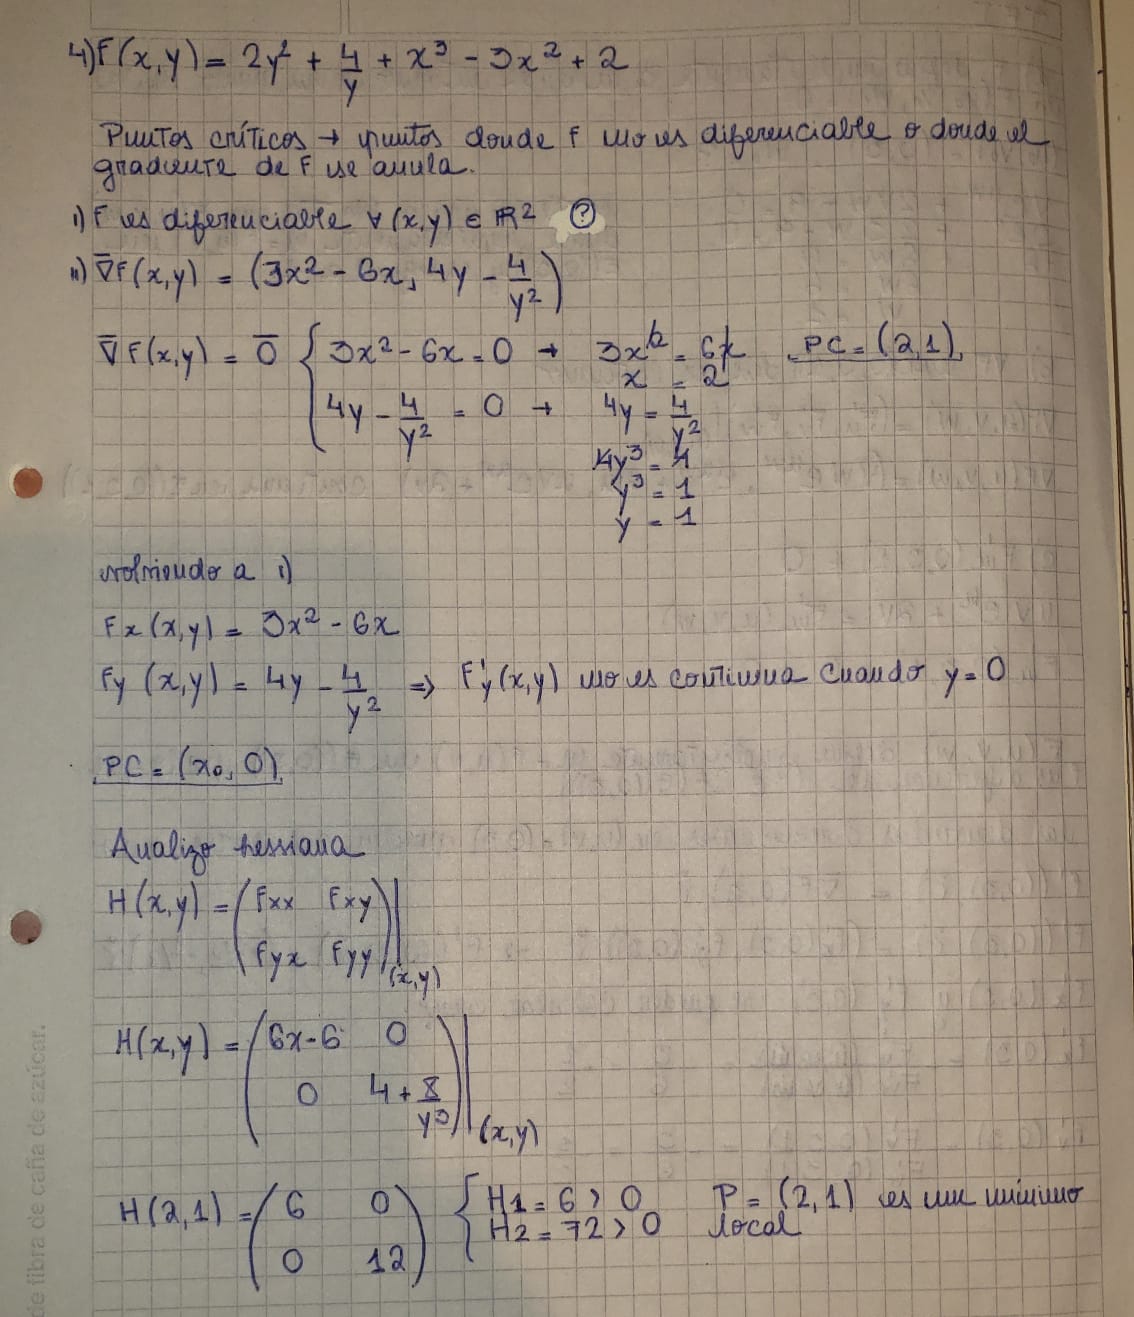 4) F(x,y) = 2y² + 4/y + x³ - 3x² + 2
Puntos críticos → puntos donde f no es diferenciable o donde el
gradiente de F se anula.
i) F es diferenciable ∀ (x,y) ∈ ℝ² ?
ii) ∇̄F(x,y) = (3x² - 6x, 4y - 4/y²)
∇̄F(x,y) = 0̄ { 3x² - 6x = 0 → 3x² = 6x PC = (2,1)
x = 2
4y - 4/y² = 0 → 4y = 4/y²
4y³ = 4
y³ = 1
y = 1
volviendo a i)
Fx(x,y) = 3x² - 6x
Fy(x,y) = 4y - 4/y² ⇒ F'y(x,y) no es continua cuando y = 0
PC = (x₀, 0)
Analizo hessiana
H(x,y) = (Fxx Fxy
Fyx Fyy)|(x,y)
H(x,y) = (6x-6 0
0 4 + 8/y³)|(x,y)
H(2,1) = (6 0 { H1 = 6 > 0 P = (2,1) es un mínimo
0 12) H2 = 72 > 0 local
de fibra de caña de azúcar.